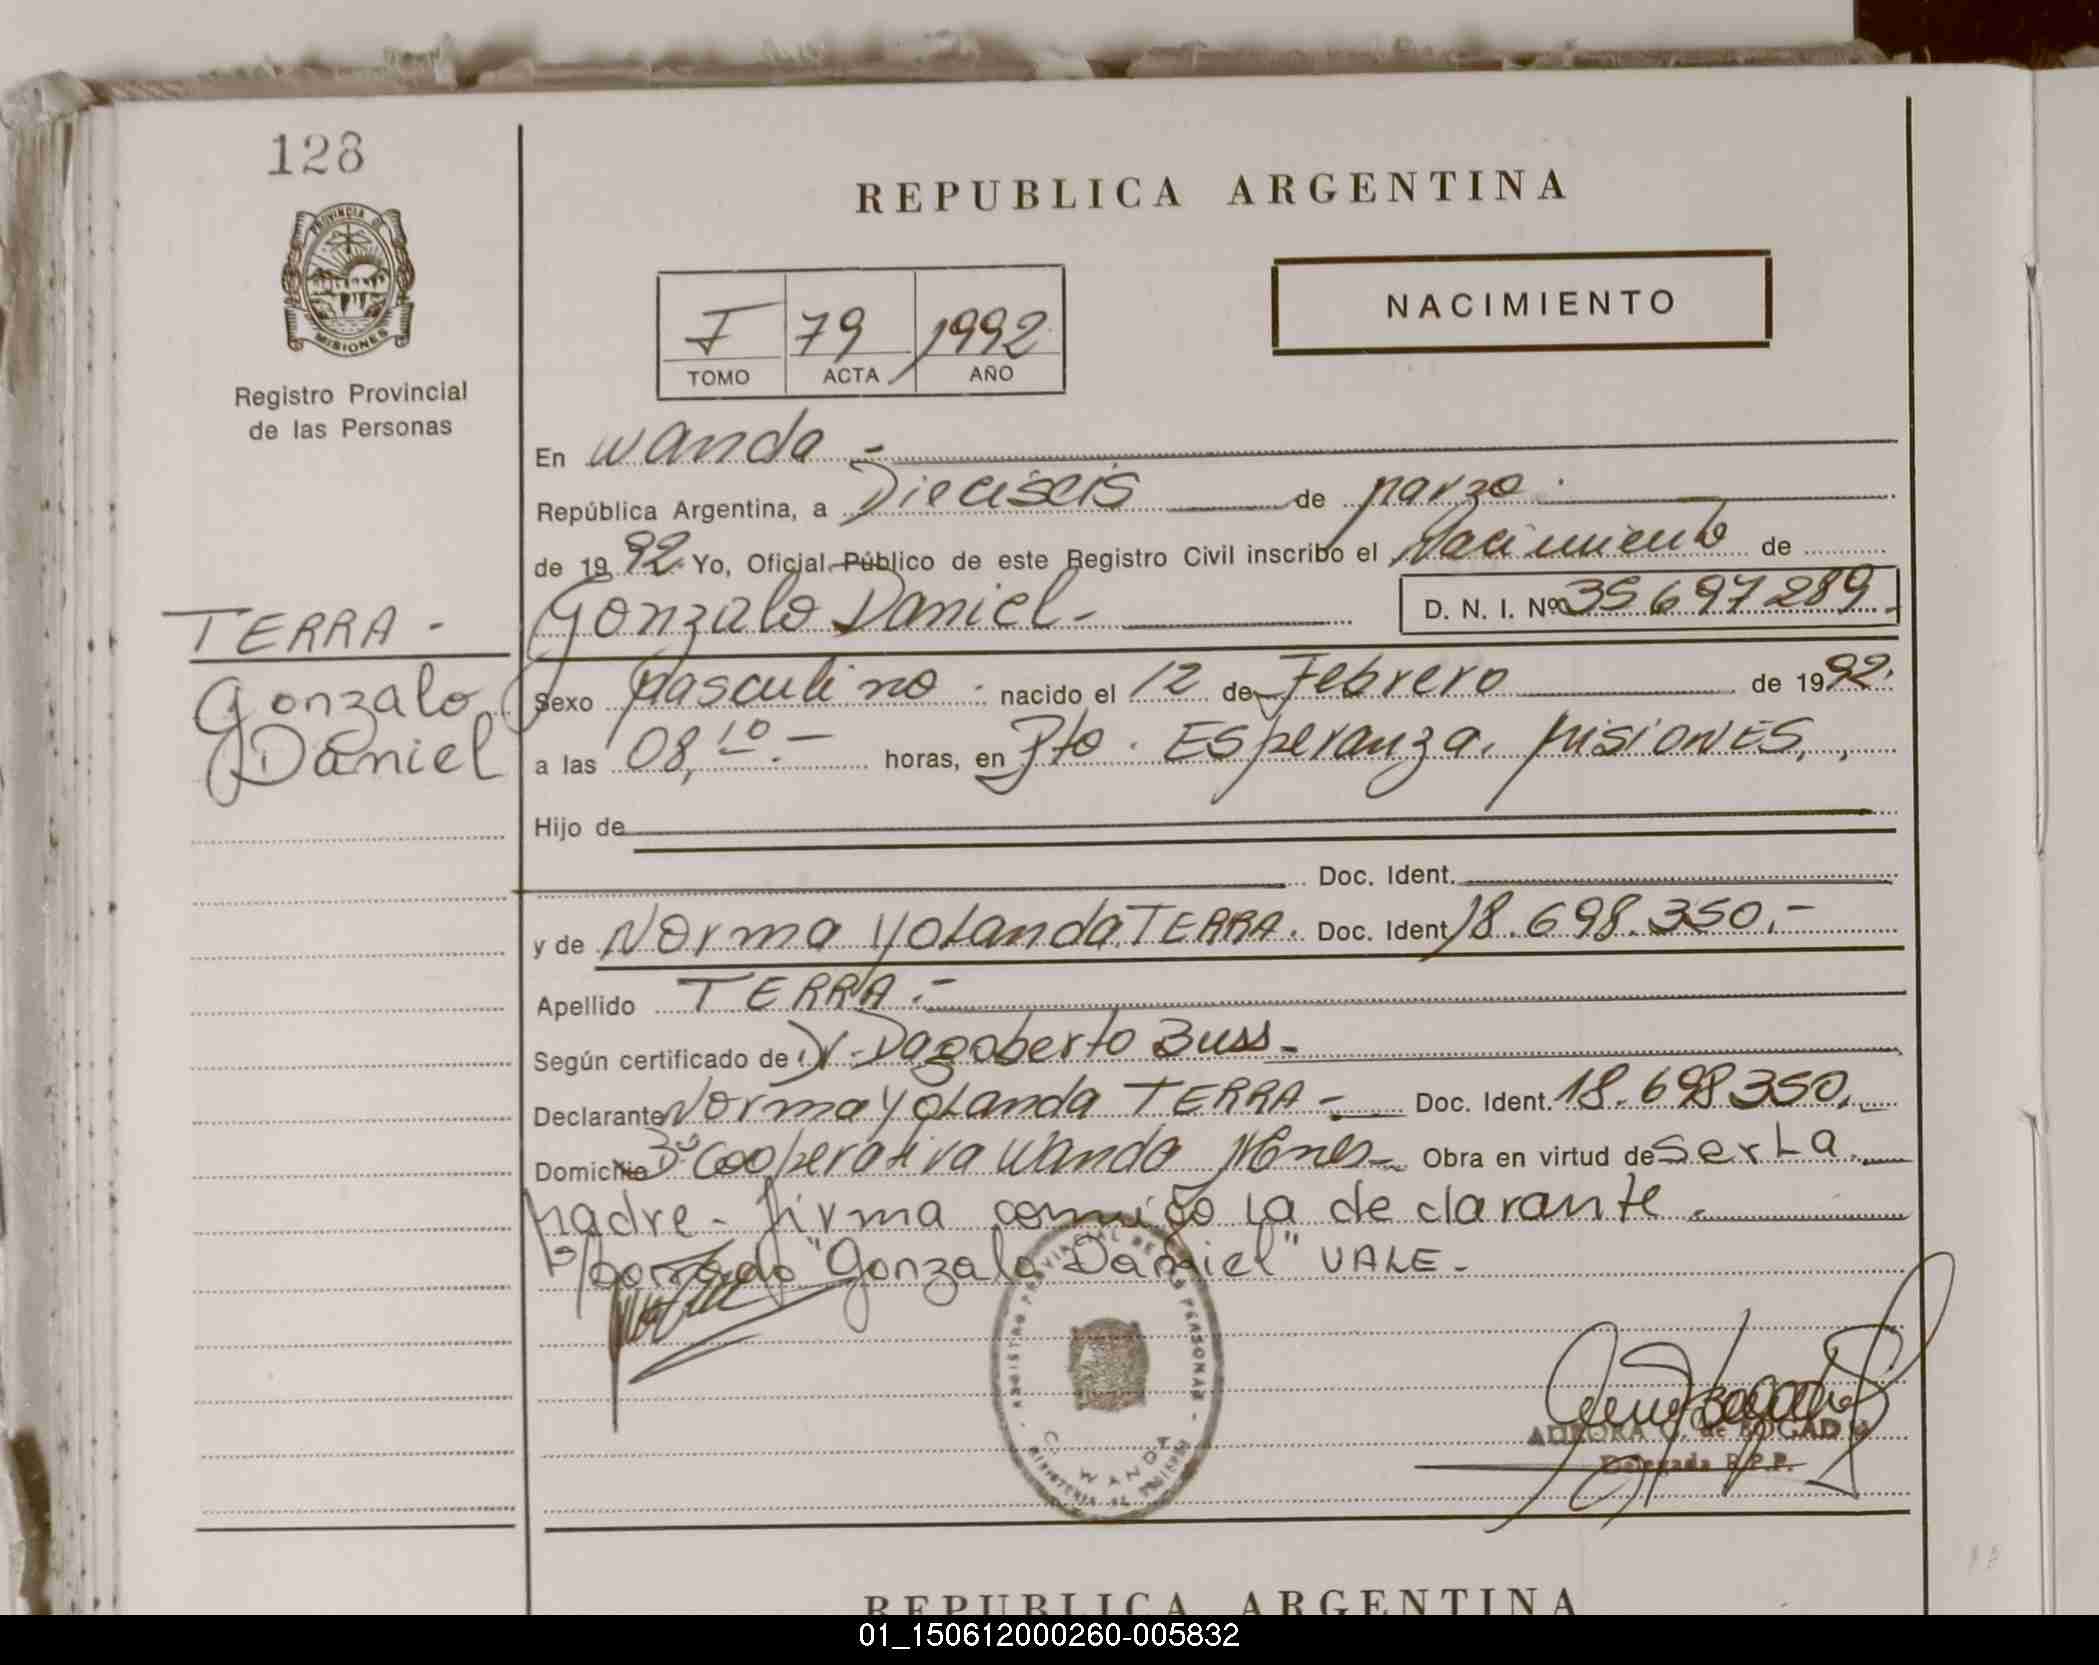 128
PROVINCIA DE
MISIONES
Registro Provincial
de las Personas
REPUBLICA ARGENTINA
NACIMIENTO
I 79 1992
TOMO ACTA AÑO
En Wanda -
República Argentina, a Dieciseis de Marzo.
de 1992. Yo, Oficial Público de este Registro Civil inscribo el Nacimiento de
Gonzalo Daniel- D. N. I. Nº 35697289.
TERRA -
Gonzalo
Daniel
Sexo Masculino. nacido el 12 de Febrero de 1992.
a las 08,10.- horas, en Pto. Esperanza. Misiones.,
Hijo de
Doc. Ident.
y de Norma Yolanda TERRA. Doc. Ident 18.698.350.-
Apellido TERRA.-
Según certificado de Dr. Dagoberto Buss-
Declarante Norma Yolanda TERRA- Doc. Ident. 18.698350.
Domicilio Bº Cooperativa Wanda Mnes- Obra en virtud de ser La
Madre- firma comigo la declarante.
s/borrado "Gonzalo Daniel" VALE-
REGISTRO PROVINCIAL DE LAS PERSONAS
WANDA
AURORA G. de BOGADO
Delegada R.P.P.
REPUBLICA ARGENTINA
01_150612000260-005832